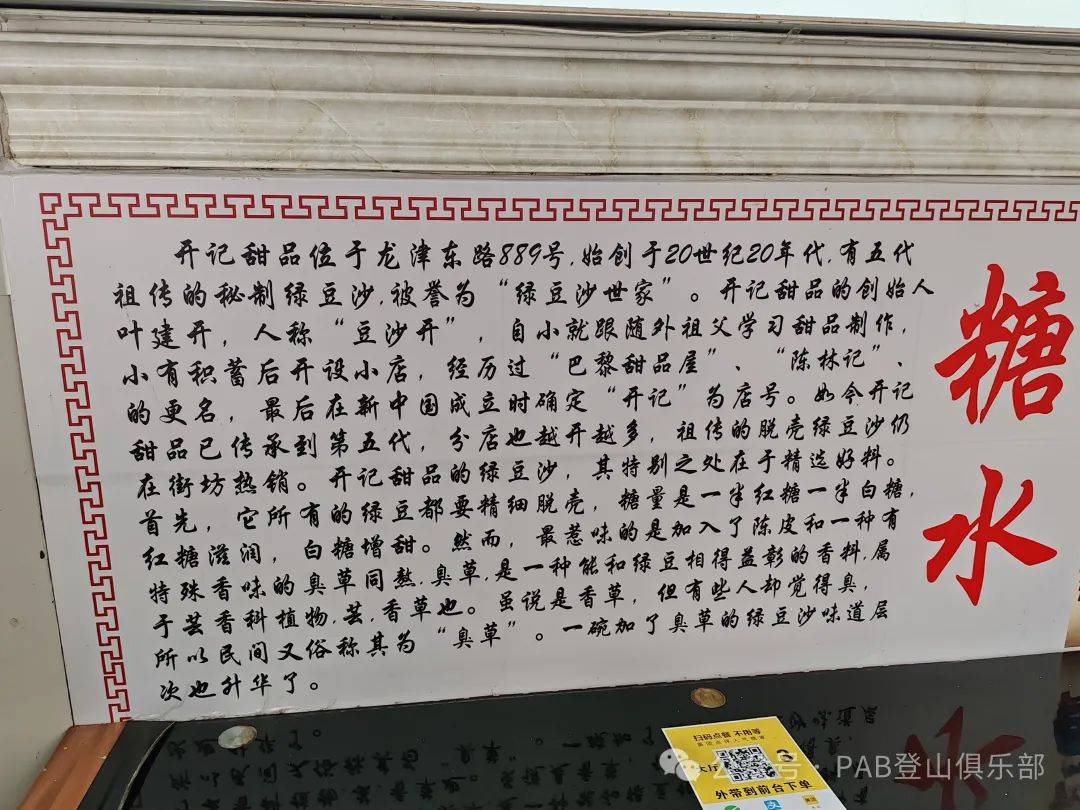 开记甜品位于龙津东路889号,始创于20世纪20年代,有五代
祖传的秘制绿豆沙,被誉为“绿豆沙世家”。开记甜品的创始人
叶建开,人称“豆沙开”,自小就跟随外祖父学习甜品制作,
小有积蓄后开设小店,经历过“巴黎甜品屋”、“陈林记”、
的更名,最后在新中国成立时确定“开记”为店号。如今开记
甜品已传承到第五代,分店也越开越多,祖传的脱壳绿豆沙仍
在街坊热销。开记甜品的绿豆沙,其特别之处在于精选好料。
首先,它所有的绿豆都要精细脱壳,糖量是一半红糖一半白糖,
红糖滋润,白糖增甜。然而,最惹味的是加入了陈皮和一种有
特殊香味的臭草同熬,臭草,是一种能和绿豆相得益彰的香料,属
于芸香科植物,芸,香草也。虽说是香草,但有些人却觉得臭,
所以民间又俗称其为“臭草”。一碗加了臭草的绿豆沙味道层
次也升华了。
糖水
扫码点餐 不用等
大厅
3
外带到前台下单
号·PAB登山俱乐部